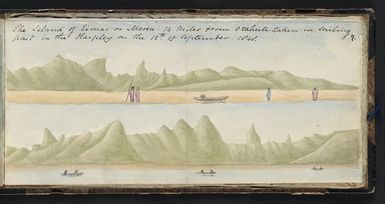 The Island of Eimeo or Morea 14 miles from Otaheite taken in sailing
past in the Harpley on the 12th of September 1848.